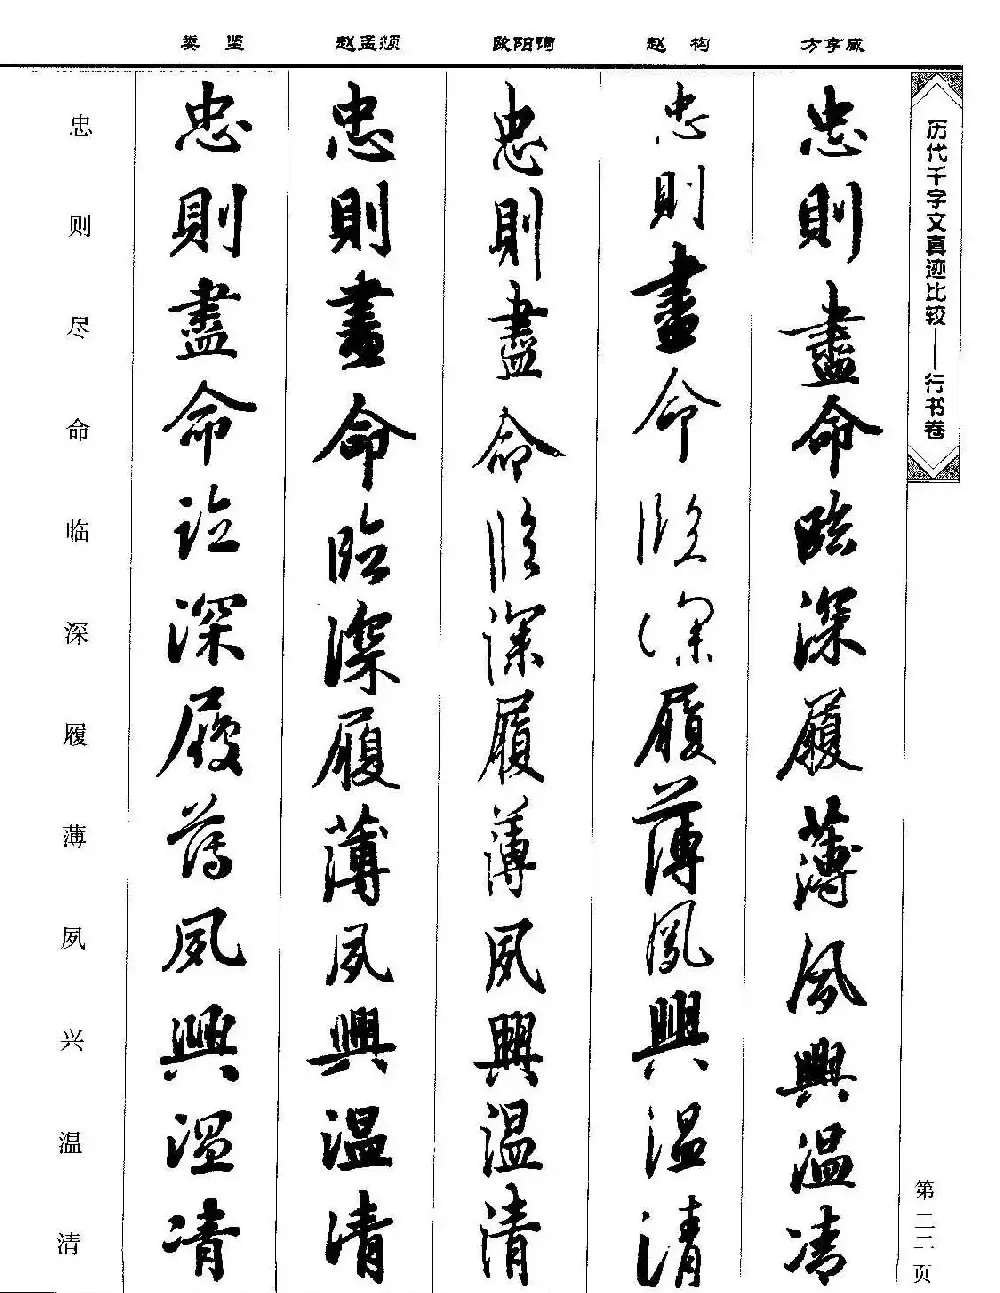 娄坚 赵孟頫 欧阳询 赵构 方亨咸
历代千字文真迹比较——行书卷
忠則盡命臨深履薄夙興温凊
忠則盡命臨深履薄夙興温清
忠則盡命臨深履薄夙興温清
忠則盡命臨深履薄夙興温清
忠則盡命臨深履薄夙興温凊
忠则尽命临深履薄夙兴温清
第二二页